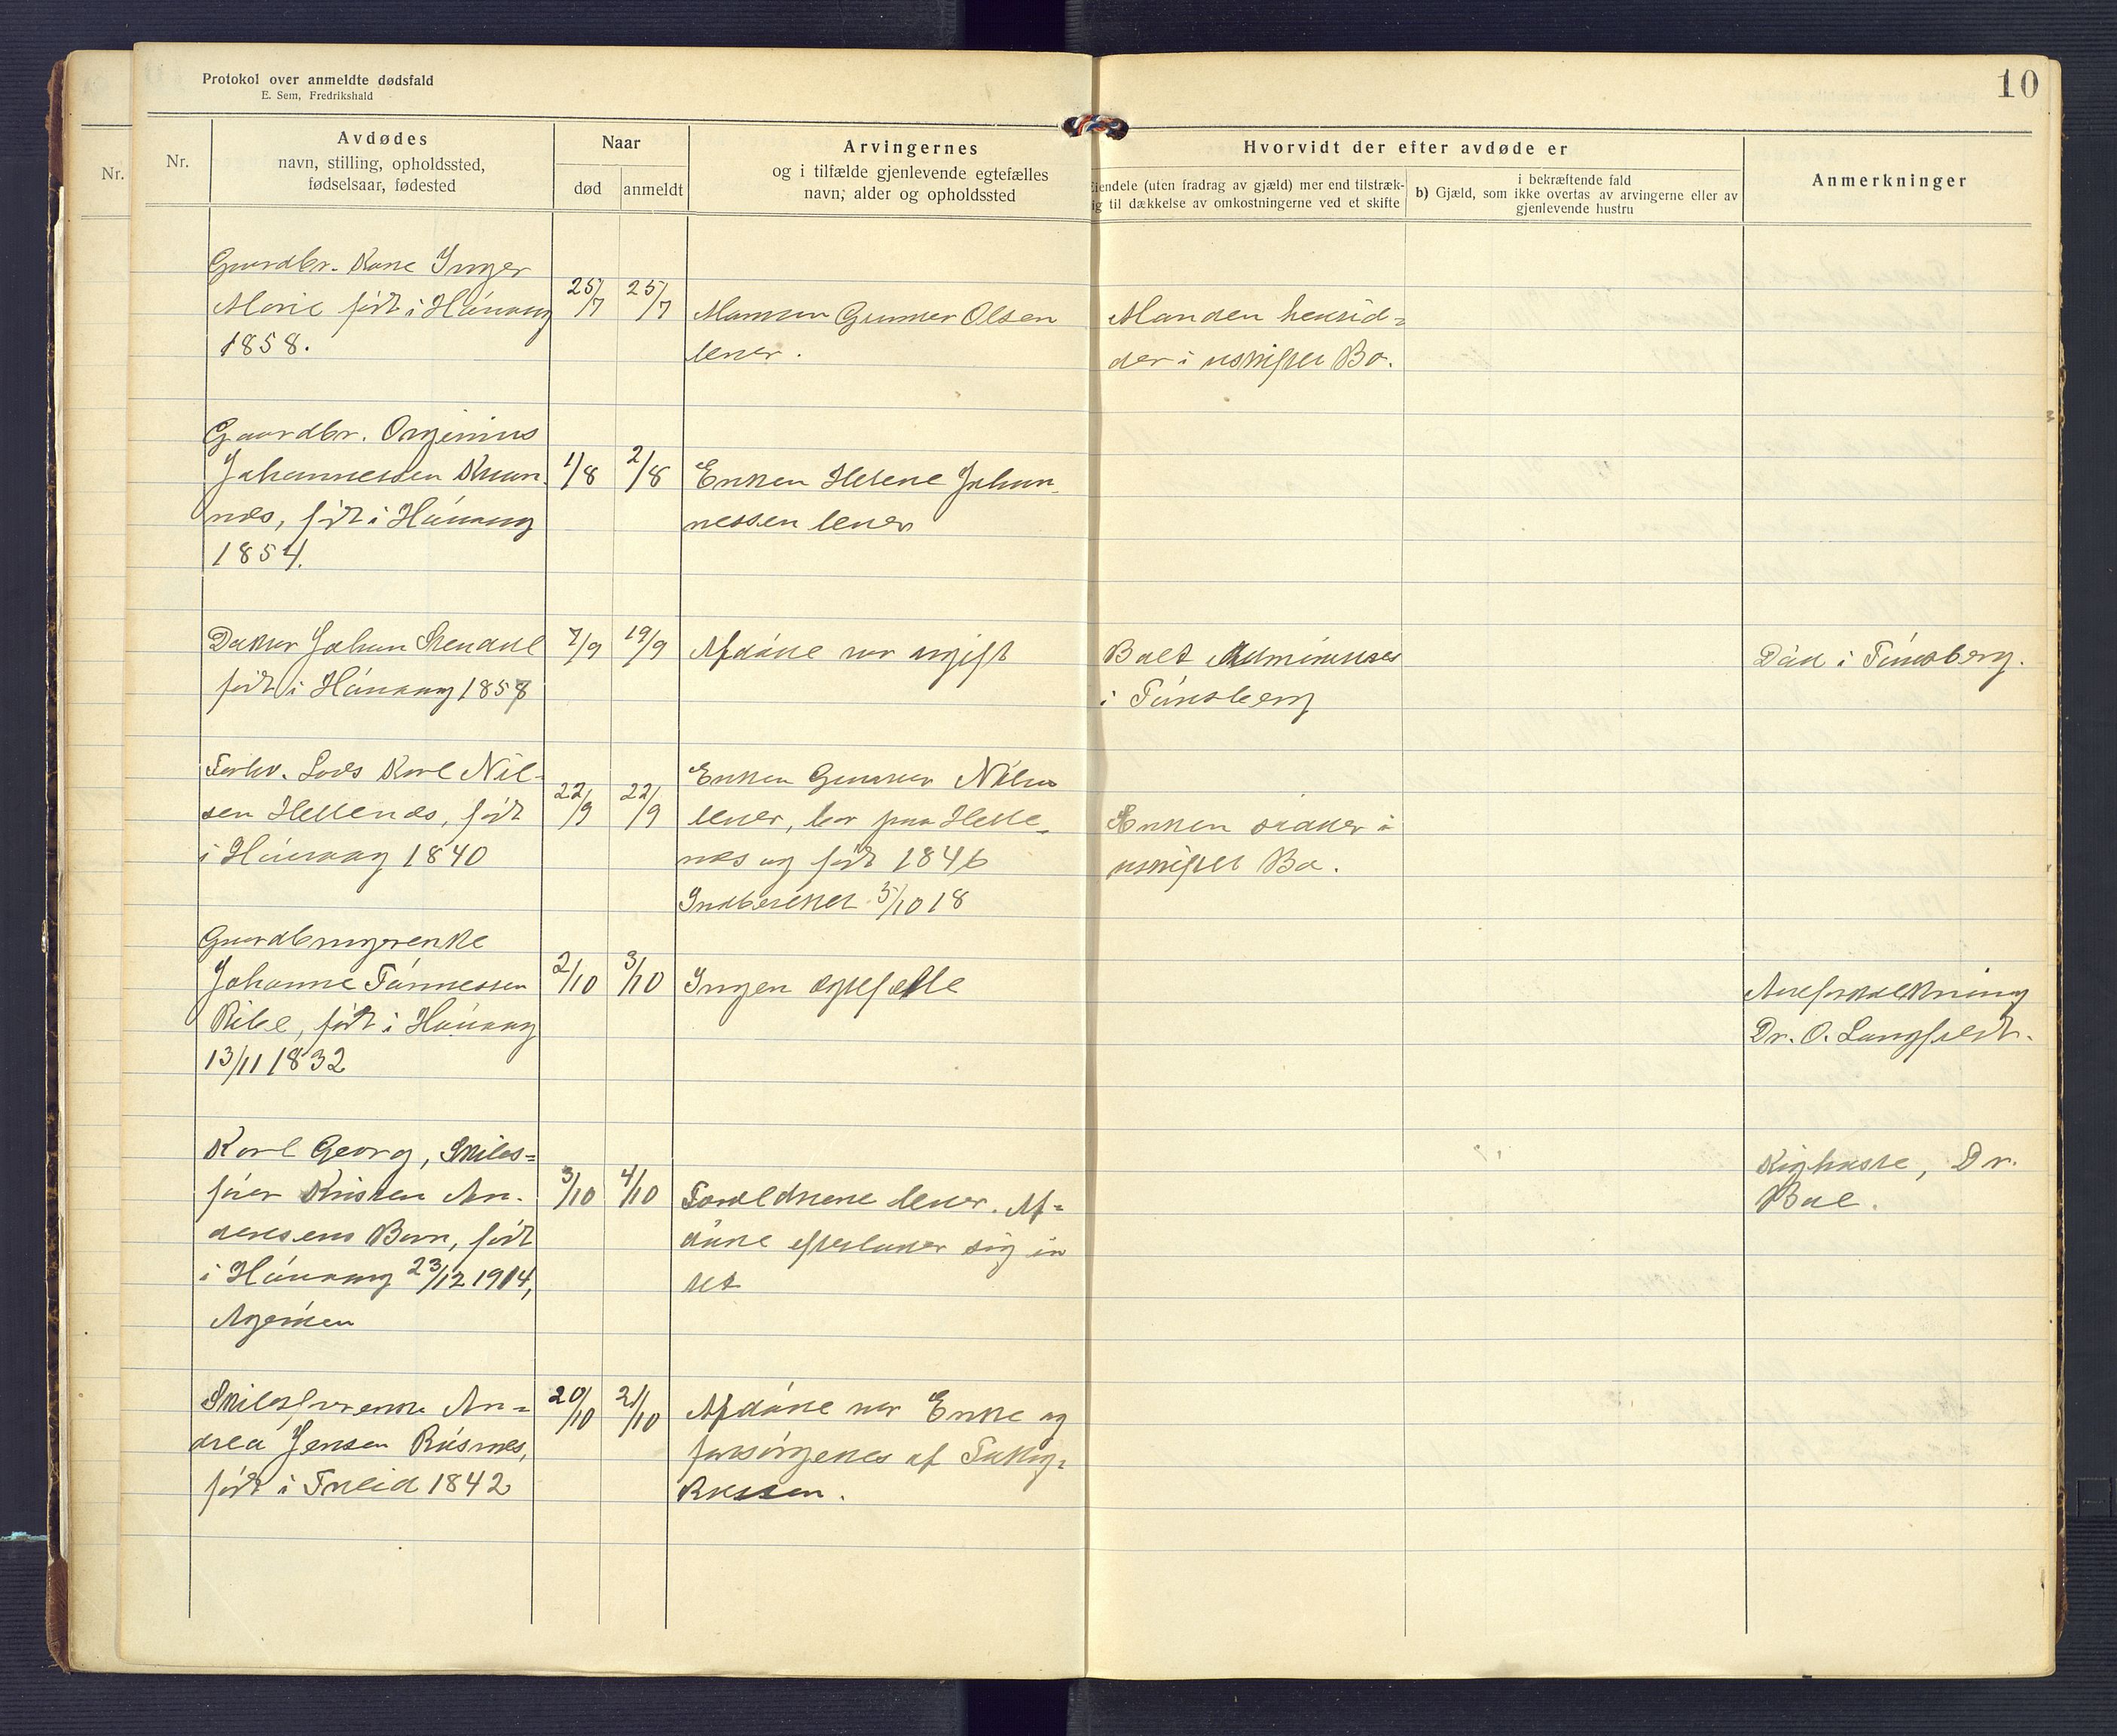 10
Protokol over anmeldte dødsfald
E. Sem, Fredrikshald
Nr.
Nr.
Avdødes
navn, stilling, opholdssted,
fødselsaar, fødested
Naar
død
anmeldt
Arvingernes
og i tilfælde gjenlevende egtefælles
navn, alder og opholdssted
Hvorvidt der efter avdøde er
Eiendele (uten fradrag av gjæld) mer end tilstræk-
ig til dækkelse av omkostningerne ved et skifte
i bekræftende fald
b) Gjæld, som ikke overtas av arvingerne eller av
gjenlevende hustru
Anmerkninger
Gaardbr. Kone Inger
Marie født i Hövaag
1858.
25/7
25/7
Manden Gunner Olsen
lever.
Manden hensid=
der i uskiftet Bo.
Gaardbr. Orginius
Johannessen
næs, født i Hövaag
1854.
1/8
2/8
Enken Helene Johan-
nessen lever
Johan Stendal
født i Hövaag 1858
7/9
19/9
Afdöde var ugift
Boet
i Tönsberg
Död i Tönsberg.
Forhv. Lods Karl Nil-
sen Hellenes, født
i Hövaag 1840
22/9
22/9
Enken Gunner Nilsen
lever, bor paa Helle-
nes og født 1846
Indberettet 5/10 18
Enken sidder i
uskiftet Bo.
Gaardbrugerenke
Johanne Tönnessen
Ribe, født i Hövaag
13/11 1832
2/10
3/10
Ingen egtefelle
Areforkalkning
Dr. O. Langfeldt.
Karl Georg, Skibs=
förer Kristen An-
dersens Barn, født
i Hövaag 23/12 1914,
Agerøen
3/10
4/10
Foreldrene lever. Af=
döde efterlader sig in
tet
Kighoste, Dr.
Boe.
Skibsförerenke An=
drea Jensen Rösnes,
født i Tveid 1842
20/10
21/10
Afdöde var Enke og
forsörgedes af Fattig=
kassen.